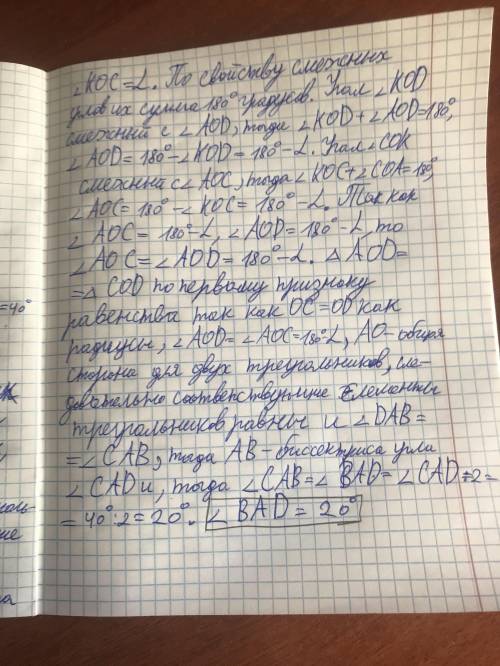 ∠KOC = L. По свойству смежных
углов их сумма 180° градусов. Угол ∠KOD
смежный с ∠AOD, тогда ∠KOD + ∠AOD=180°,
∠AOD = 180° - ∠KOD = 180° - L. Угол ∠COK
смежный с ∠AOC, тогда ∠KOC+∠COA=180°,
∠AOC = 180° - ∠KOC = 180° - L. Так как
∠AOC = 180° - L, ∠AOD = 180° - L, то
∠AOC = ∠AOD = 180° - L. △AOD=
=△COD по первому признаку
равенства так как OC=OD как
радиусы, ∠AOD = ∠AOC=180°-L, AO - общая
сторона для двух треугольников, сле-
довательно соответствующие елементы
треугольников равны и ∠DAB =
= ∠CAB, тогда AB - биссектриса угла
∠CAD и, тогда ∠CAB=∠BAD=∠CAD÷2=
= 40°:2 = 20°. ∠BAD = 20°
=40°